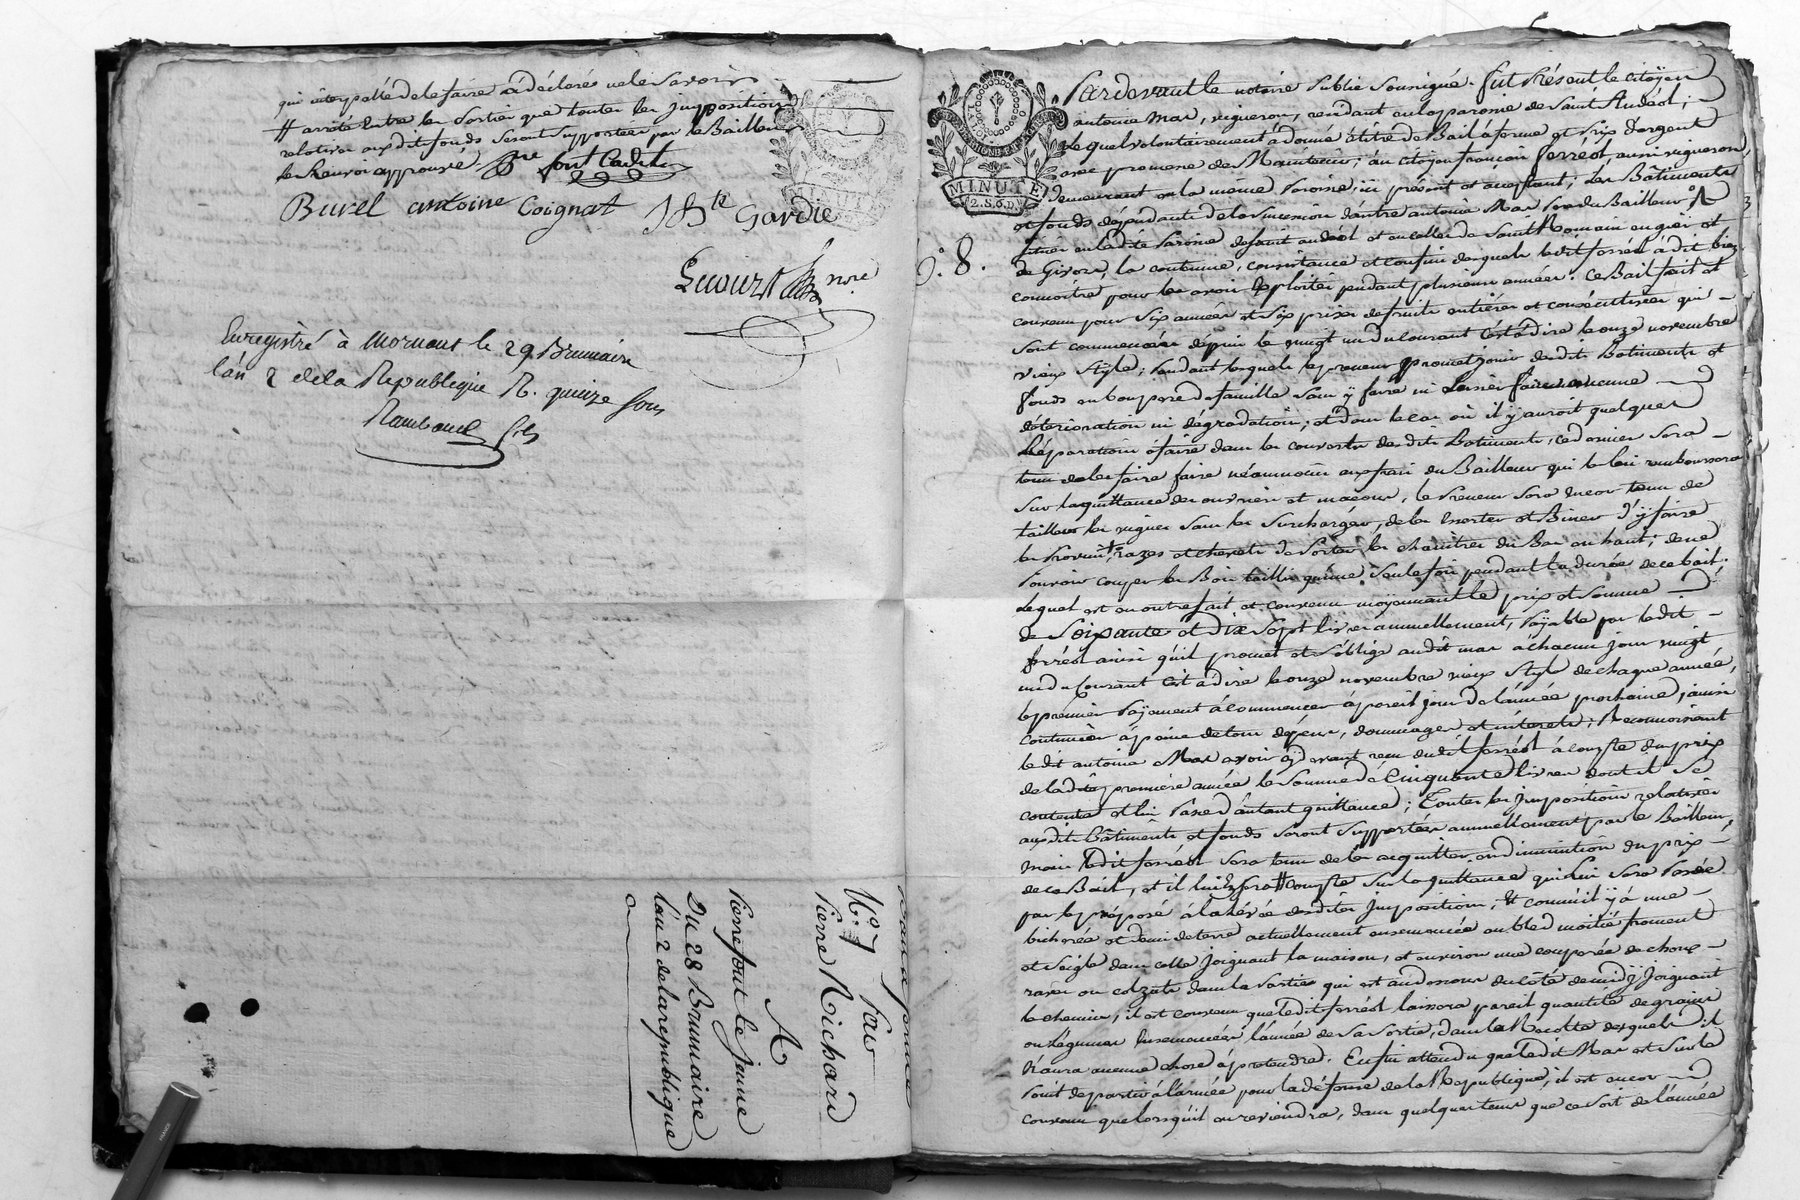 qui interpellé de le faire a déclaré ne le savoir
# arrêté entre les parties que toutes les impositions
relatives auxdits fonds seront supportées par le Bailleur
le Renvoi approuvé
Burel antoine Coignat J B te Gardie
Lecourt nore
Enregistré à Mornant le 29 Brumaire
l'an 2 de la Republique R. quinze sous
Rambaud fils
Bail a ferme
No. 7 Par
Pierre Richard
A
Pierre font le jeune
Du 28 Brumaire
l'an 2 de la republique
MINUTE
2.S.6.D
No. 8.
Pardevant le notaire Public soussigné. fut Présent le citoÿen
antoine Mar, vigneron, résidant en la paroisse de Saint Andéol;
Lequel volontairement a donné à titre de Bail à ferme et Prix d'argent
avec promesse de Maintenir; au citoÿen françois ferréol, aussi vigneron,
demeurant en la même Paroisse, ici présent et acceptant; les Bâtiments
et fonds dependants de la succession d'autre antoine Mar Pere du Bailleur
situés en ladite Paroisse de saint andéol et en celles de saint Romain en gier et
de Givors, la contenue, consistance et confins desquels ledit ferréol a dit bien
connoitre pour les avoir exploités pendant plusieurs années. Ce Bail fait et
convenu pour Six années et Six prises de fruits entières et consécutives qui
sont commencées depuis le vingt un du courant c'est à dire le onze novembre
vieux style; Pendant lesquels le preneur promet jouir desdits Batiments et
fonds en bon pere de famille sans ÿ faire ni Laisser faire aucune
déterioration ni dégradation; et dans le cas ou il ÿ auroit quelques
Réparations à faire dans les couverts desdits Batiments, ce dernier sera
tenu de les faire faire néanmoins aux frais du Bailleur qui le lui remboursera
sur la quittance des ouvriers et maçons, le Preneur sera encor tenu de
tailler les vignes sans les surcharger, de les et Biner d'ÿ faire
les Provins, razes et chevets de Porter les chaintres du Bas en haut; de ne
Pouvoir couper les Bois taillis qu'une seule fois pendant la durée de ce bail;
Lequel est en outre fait et convenu moÿennant le prix et somme
de Soixante et dix Sept livres annuellement, Païable par ledit
ferréol ainsi qu'il promet et s'oblige audit mar à chacun jour vingt
un du Courant c'est à dire le onze novembre vieux style de chaque année,
le premier Païement à commencer à pareil jour de l'année prochaine, ainsi
continuer à peine de tous dépens, dommages et intérets; Reconnoissant
ledit antoine Mar avoir cÿ devant reçu dudit ferréol à compte du prix
de ladite première année la somme de Cinquante livres dont il se
contente et lui Passe d'autant quittance; Toutes les Impositions relatives
auxdits Bâtiments et fonds seront supportées annuellement par le Bailleur,
mais ledit ferréol sera tenu de les acquitter en diminution du prix
de ce Bail, et il lui en sera # compte sur la quittance qui lui sera Passée
par le préposé à la levée desdites Impositions; Et comme il ÿ a une
bicherée et demi de terre actuellement ensemencée en bled moitié froment
et seigle dans celle joignant la maison, et environ une couponée de choux
raves ou colzats dans la Partie qui est au dessous du côté de midÿ joignant
le chemin, il est convenu que ledit ferréol laissera pareil quantité de grains
ou légumes ensemencés l'année de sa sortie, dans la Recolte desquels il
n'aura aucune chose à prétendre. Enfin attendu que ledit Mar est sur le
Point de partir à l'armée pour la défense de la Republique, il est encor
convenu que lorsqu'il en reviendra, dans quelques tems que ce soit de l'année